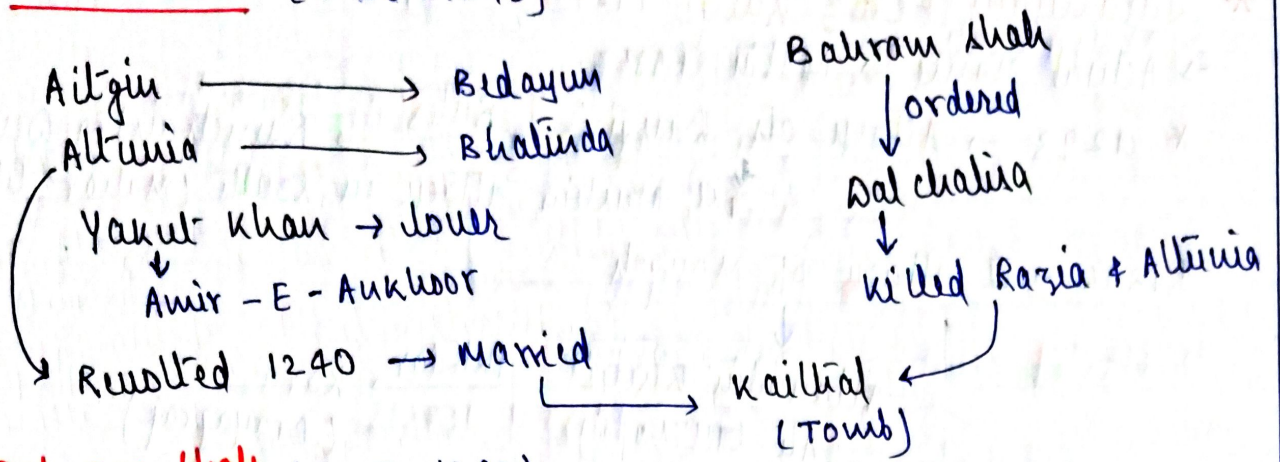 Aitgin → Bedayun
Altunia → Bhatinda
Yakut Khan → lover
↓
Amir - E - Aukhoor
Revolted 1240 → Married
Bahram Shah
↓ ordered
Dal chalisa
↓
Killed Razia & Altunia
Kaithal
(Tomb)